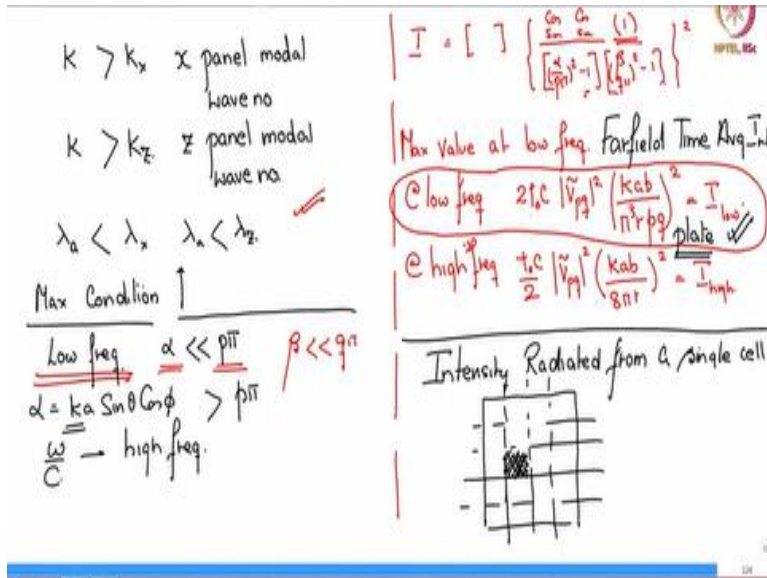 K > Kx x panel modal
wave no
K > Kz. z panel modal
wave no.
λa < λx λa < λz.
Max Condition ↑
Low freq. α << pπ β << qπ
α = ka Sinθ Cosφ > pπ
ω/C → high freq.
I = [ ] { Cos Cos (1)
Sin Sin
[(α/pπ)² -1] [(β/qπ)² -1] }²
NPTEL, IISc
Max Value at low freq. Farfield Time Avg
@ low freq 2ρ₀C |Ṽpq|² (kab/π³rpq)² = I low.
plate
@ high freq ρ₀C/2 |Ṽpq|² (kab/8πr)² = I high
Intensity Radiated from a single cell